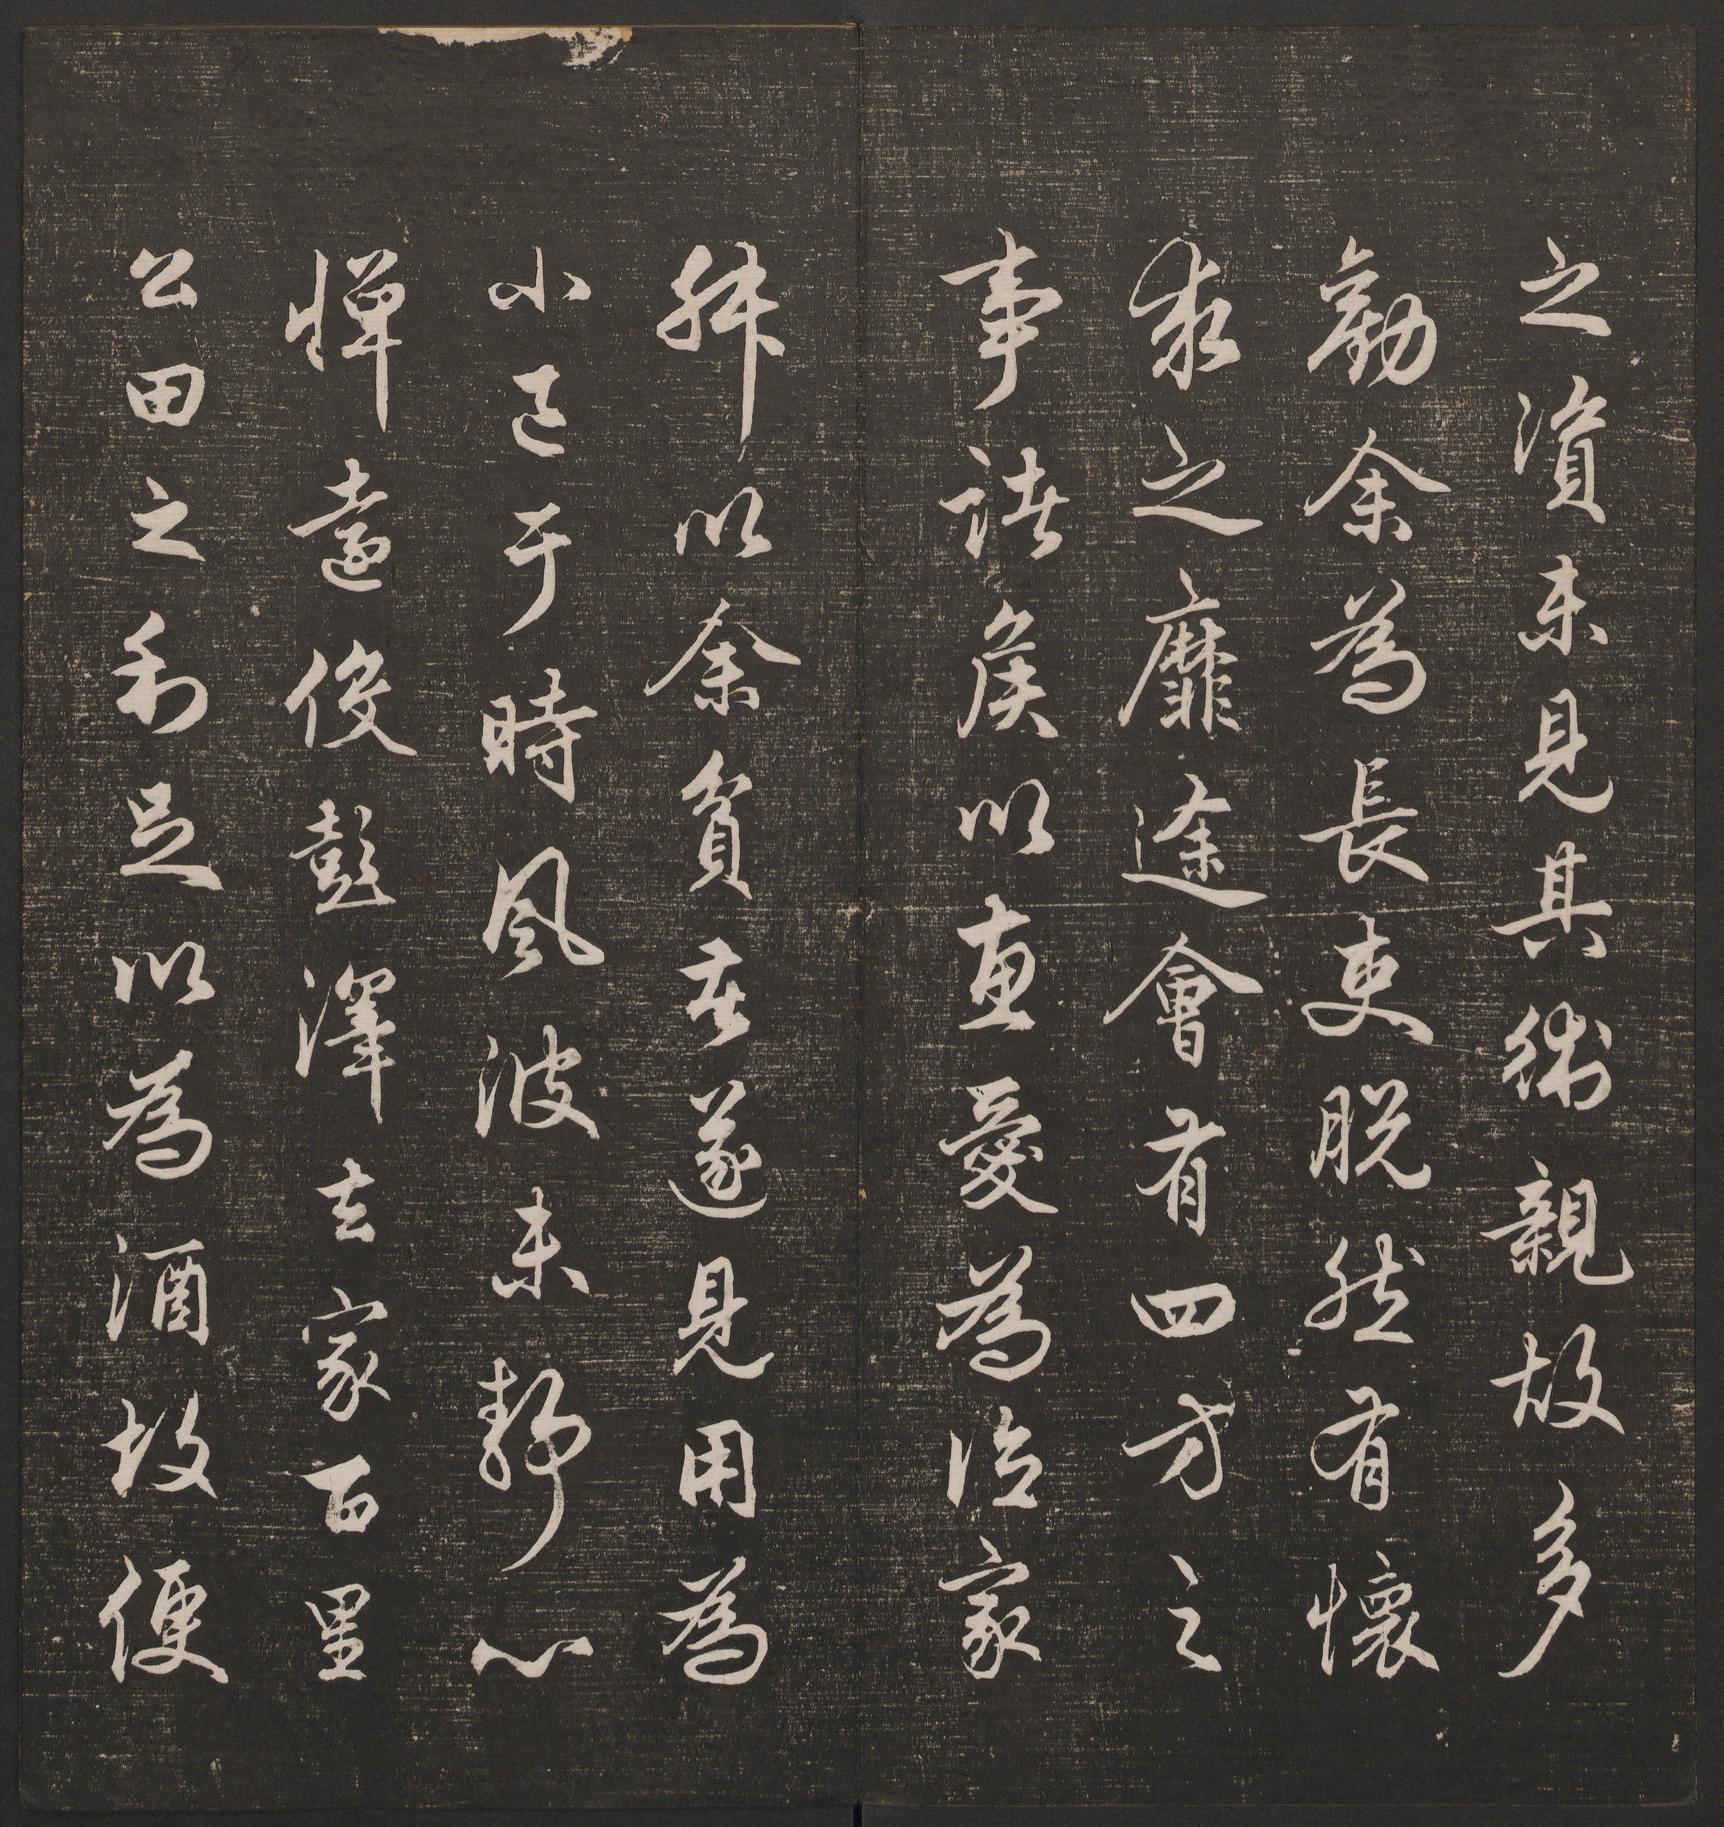 之資未見其術親故多
勸余為長吏脫然有懷
求之靡途會有四方之
事諸侯以惠愛為德家
叔以余貧苦遂見用為
小邑于時風波未靜心
憚遠役彭澤去家百里
公田之利足以為酒故便